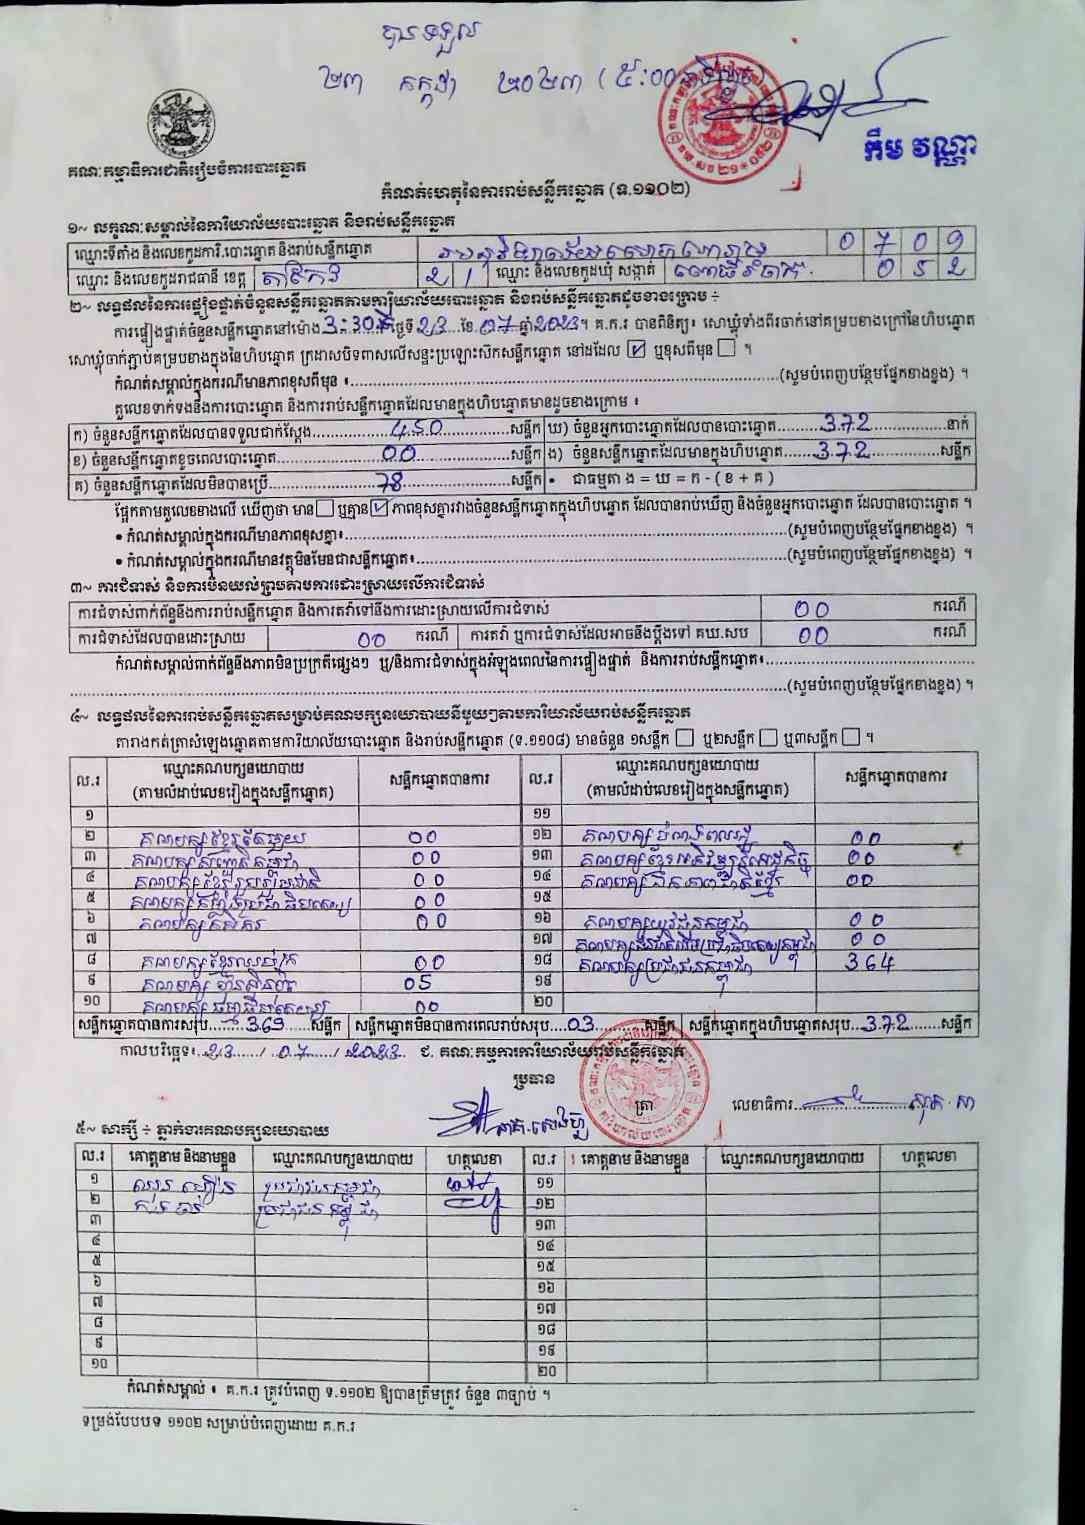 បានទទួល
២៣ កក្កដា ២០២៣ (៥:០០
គណៈកម្មាធិការជាតិរៀបចំការបោះឆ្នោត
កឹម វណ្ណា
កំណត់ហេតុនៃការរាប់សន្លឹកឆ្នោត (ទ.១១០២)
១~ លក្ខណៈសម្គាល់នៃការិយាល័យបោះឆ្នោត និងរាប់សន្លឹកឆ្នោត
ឈ្មោះទីតាំង និងលេខកូដការិ.បោះឆ្នោត និងរាប់សន្លឹកឆ្នោត 0 7 0 9
ឈ្មោះ និងលេខកូដរាជធានី ខេត្ត តាកែវ 2 1 ឈ្មោះ និងលេខកូដឃុំ សង្កាត់ ពោធិ៍រំចាក 0 5 2
២~ លទ្ធផលនៃការផ្ទៀងផ្ទាត់ចំនួនសន្លឹកឆ្នោតតាមការិយាល័យបោះឆ្នោត និងរាប់សន្លឹកឆ្នោតដូចខាងក្រោម ÷
ការផ្ទៀងផ្ទាត់ចំនួនសន្លឹកឆ្នោតនៅម៉ោង 3:30 ថ្ងៃទី 23 .ខែ. 07 ឆ្នាំ 2023 ។ គ.ក.រ បានពិនិត្យ៖ សោឃ្លុំទាំងពីរចាក់នៅគម្របខាងក្រៅនៃហិបឆ្នោត
សោឃ្លុំចាក់ភ្ជាប់គម្របខាងក្នុងនៃហិបឆ្នោត ក្រដាសបិទពាសលើសន្ទះប្រឡោះស៊កសន្លឹកឆ្នោត នៅដដែល ☑ ឬខុសពីមុន ☐ ។
កំណត់សម្គាល់ក្នុងករណីមានភាពខុសពីមុន ៖..........(សូមបំពេញបន្ថែមផ្នែកខាងខ្នង) ។
តួលេខទាក់ទងនឹងការបោះឆ្នោត និងការរាប់សន្លឹកឆ្នោតដែលមានក្នុងហិបឆ្នោតមានដូចខាងក្រោម ៖
ក) ចំនួនសន្លឹកឆ្នោតដែលបានទទួលជាក់ស្តែង.....450.....សន្លឹក ឃ) ចំនួនអ្នកបោះឆ្នោតដែលបានបោះឆ្នោត.....372.....នាក់
ខ) ចំនួនសន្លឹកឆ្នោតខូចពេលបោះឆ្នោត.....00.....សន្លឹក ង) ចំនួនសន្លឹកឆ្នោតដែលមានក្នុងហិបឆ្នោត.....372.....សន្លឹក
គ) ចំនួនសន្លឹកឆ្នោតដែលមិនបានប្រើ.....78.....សន្លឹក • ជាធម្មតា ង = ឃ = ក - ( ខ + គ )
ផ្អែកតាមតួលេខខាងលើ ឃើញថា មាន ☐ ឬគ្មាន ☑ ភាពខុសគ្នារវាងចំនួនសន្លឹកឆ្នោតក្នុងហិបឆ្នោត ដែលបានរាប់ឃើញ និងចំនួនអ្នកបោះឆ្នោត ដែលបានបោះឆ្នោត ។
• កំណត់សម្គាល់ក្នុងករណីមានភាពខុសគ្នា៖..........(សូមបំពេញបន្ថែមផ្នែកខាងខ្នង) ។
• កំណត់សម្គាល់ក្នុងករណីមានវត្ថុមិនមែនជាសន្លឹកឆ្នោត៖..........(សូមបំពេញបន្ថែមផ្នែកខាងខ្នង) ។
៣~ ការជំទាស់ និងការមិនយល់ព្រមតាមការដោះស្រាយលើការជំទាស់
ការជំទាស់ពាក់ព័ន្ធនឹងការរាប់សន្លឹកឆ្នោត និងការតវ៉ាទៅនឹងការដោះស្រាយលើការជំទាស់ 00 ករណី
ការជំទាស់ដែលបានដោះស្រាយ 00 ករណី ការតវ៉ា ឬការជំទាស់ដែលអាចនឹងប្តឹងទៅ គឃ.សប 00 ករណី
កំណត់សម្គាល់ពាក់ព័ន្ធនឹងភាពមិនប្រក្រតីផ្សេងៗ ឬ/និងការជំទាស់ក្នុងអំឡុងពេលនៃការផ្ទៀងផ្ទាត់ និងការរាប់សន្លឹកឆ្នោត៖..........
..........(សូមបំពេញបន្ថែមផ្នែកខាងខ្នង) ។
៤~ លទ្ធផលនៃការរាប់សន្លឹកឆ្នោតសម្រាប់គណបក្សនយោបាយនីមួយៗតាមការិយាល័យរាប់សន្លឹកឆ្នោត
តារាងកត់ត្រាសំឡេងឆ្នោតតាមការិយាល័យបោះឆ្នោត និងរាប់សន្លឹកឆ្នោត (ទ.១១០៨) មានចំនួន ១សន្លឹក ☐ ឬ២សន្លឹក ☐ ឬ៣សន្លឹក ☐ ។
ល.រ ឈ្មោះគណបក្សនយោបាយ សន្លឹកឆ្នោតបានការ ល.រ ឈ្មោះគណបក្សនយោបាយ សន្លឹកឆ្នោតបានការ
(តាមលំដាប់លេខរៀងក្នុងសន្លឹកឆ្នោត) (តាមលំដាប់លេខរៀងក្នុងសន្លឹកឆ្នោត)
១ ១១
២ គណបក្សខ្មែរតែមួយ 00 ១២ គណបក្សបំណងពលរដ្ឋ 00
៣ គណបក្សសញ្ជាតិកម្ពុជា 00 ១៣ គណបក្សខ្មែរអភិវឌ្ឍន៍សេដ្ឋកិច្ច 00
៤ គណបក្សខ្មែររួបរួមជាតិ 00 ១៤ គណបក្សឯកភាពជាតិខ្មែរ 00
៥ គណបក្សកម្លាំងប្រជាធិបតេយ្យ 00 ១៥
៦ គណបក្សកសិករ 00 ១៦ គណបក្សយុវជនកម្ពុជា 00
៧ ១៧ គណបក្សជនជាតិដើមប្រជាធិបតេយ្យកម្ពុជា 00
៨ គណបក្សខ្មែរឈប់ក្រ 00 ១៨ គណបក្សប្រជាជនកម្ពុជា 364
៩ គណបក្ស ហ៊្វុនស៊ិនប៉ិច 05 ១៩
១០ គណបក្ស ធម្មាធិបតេយ្យ 00 ២០
សន្លឹកឆ្នោតបានការសរុប.....369.....សន្លឹក សន្លឹកឆ្នោតមិនបានការពេលរាប់សរុប.....03.....សន្លឹក សន្លឹកឆ្នោតក្នុងហិបឆ្នោតសរុប.....372.....សន្លឹក
កាលបរិច្ឆេទ៖ 23 / 07 / 2023 ជ. គណៈកម្មការការិយាល័យរាប់សន្លឹកឆ្នោត
ប្រធាន
ត្រា
លេខាធិការ
៥~ សាក្សី ÷ ភ្នាក់ងារគណបក្សនយោបាយ
ល.រ គោត្តនាម និងនាមខ្លួន ឈ្មោះគណបក្សនយោបាយ ហត្ថលេខា ល.រ គោត្តនាម និងនាមខ្លួន ឈ្មោះគណបក្សនយោបាយ ហត្ថលេខា
១ ប្រជាជនកម្ពុជា ១១
២ ប្រជាជនកម្ពុជា ១២
៣ ១៣
៤ ១៤
៥ ១៥
៦ ១៦
៧ ១៧
៨ ១៨
៩ ១៩
១០ ២០
កំណត់សម្គាល់ ៖ គ.ក.រ ត្រូវបំពេញ ទ.១១០២ ឱ្យបានត្រឹមត្រូវ ចំនួន ៣ច្បាប់ ។
ទម្រង់បែបបទ ១១០២ សម្រាប់បំពេញដោយ គ.ក.រ